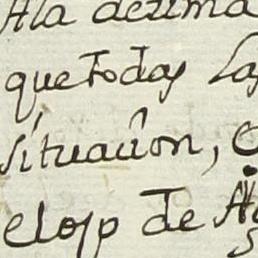 A la decima
que todas las
situacion,
el osp de